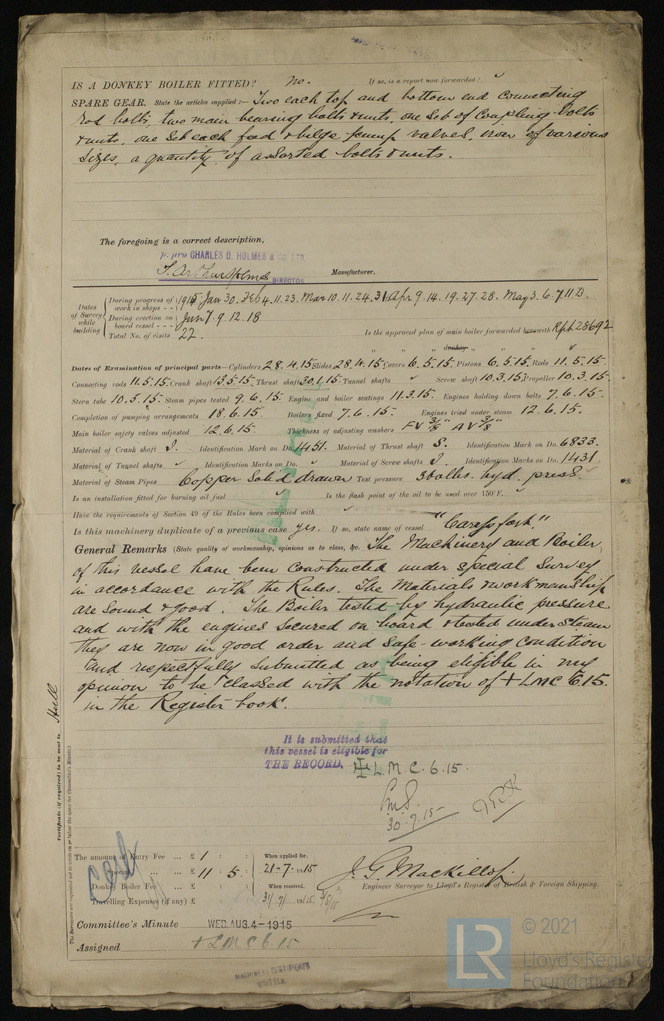 IS A DONKEY BOILER FITTED? No. If so, is a report now forwarded?
SPARE GEAR. State the articles supplied:— Two each top and bottom end connecting
rod bolts, two main bearing bolts & nuts, one set of coupling bolts
& nuts, one set each feed & bilge pump valves, iron of various
sizes, a quantity of assorted bolts & nuts.
The foregoing is a correct description,
p. pro CHARLES D. HOLMES & CO. LTD
DIRECTOR Manufacturer.
Dates of Survey while building
During progress of work in shops - - 1915 Jan 30. Feb 4. 11. 23. Mar 10. 11. 24. 31 Apr 9. 14. 19. 27. 28. May 3. 6. 7. 11
During erection on board vessel - - - Jun 7. 9. 12. 18
Total No. of visits 22. Is the approved plan of main boiler forwarded herewith Rpt 28692
" " " donkey " " "
Dates of Examination of principal parts—Cylinders 28.4.15 Slides 28.4.15 Covers 6.5.15 Pistons 6.5.15 Rods 11.5.15
Connecting rods 11.5.15 Crank shaft 13.5.15 Thrust shaft 30.1.15 Tunnel shafts Screw shaft 10.3.15 Propeller 10.3.15
Stern tube 10.3.15 Steam pipes tested 9.6.15 Engine and boiler seatings 11.3.15 Engines holding down bolts 7.6.15
Completion of pumping arrangements 18.6.15 Boilers fixed 7.6.15 Engines tried under steam 12.6.15
Main boiler safety valves adjusted 12.6.15 Thickness of adjusting washers
Material of Crank shaft Identification Mark on Do. 1451 Material of Thrust shaft S. Identification Mark on Do. 6833
Material of Tunnel shafts Identification Marks on Do. Material of Screw shafts Identification Marks on Do. 1431
Material of Steam Pipes Copper solid drawn Test pressure lbs. hyd. press.
Is an installation fitted for burning oil fuel Is the flash point of the oil to be used over 150°F.
Have the requirements of Section 49 of the Rules been complied with
Is this machinery duplicate of a previous case yes. If so, state name of vessel
General Remarks (State quality of workmanship, opinions as to class, &c. The Machinery and Boiler
of this vessel have been constructed under special survey
in accordance with the Rules. The Materials & workmanship
are sound & good. The Boiler tested by hydraulic pressure
and with the engines secured on board & tested under steam
they are now in good order and safe working condition
and respectfully submitted as being eligible in my
opinion to be classed with the notation of + LMC 6.15.
in the Register book.
It is submitted that
this vessel is eligible for
THE RECORD. + L.M.C. 6.15.
30.7.15
Certificate (if required) to be sent to Hull
The amount of Entry Fee ... £ 1 : : When applied for,
£ 11 : 5 : 21-7-1915
Donkey Boiler Fee ... £ : : When received,
Travelling Expenses (if any) £ : :
J. G. Mackillop
Engineer Surveyor to Lloyd's Register of British & Foreign Shipping.
Committee's Minute WED. AUG. 4-1915
Assigned + L.M.C. 6.15
MACHINERY CERTIFICATE
WRITTEN
LR © 2021
Lloyd's Register
Foundation